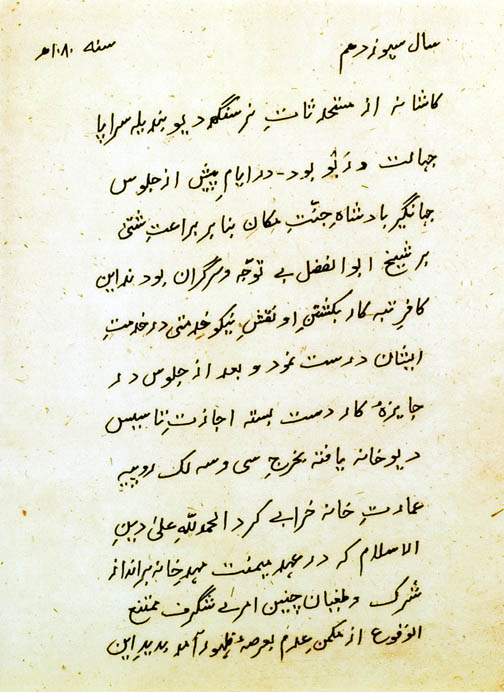 سال سیوزدهم سنه ۱۰۸۰ه
کاشانه از مستحدثاتِ نرسنگهه دیو بندیله سراپا
جهالت و بود - در ایامِ پیش از جلوس
جهانگیر بادشاهِ جنّت مکان بنا بر براعتِ شتّی
بر شیخ ابوالفضل بے توجّه و سرگران بودند این
کافرِ تبه کار بکشتنِ او نقشِ نیکو خدمتی در خدمتِ
ایشان درست نمود و بعد از جلوس در
جایزهٔ کار دست بسته اجازتِ تاسیس
دیوخانه یافته بخرجِ سی و سه لک روپیه
عمارتِ خانه خرابے کرد الحمدللّٰهِ علیٰ دینِ
الاسلام که در عهد میمنت مهدِ خانه برانداز
شرک و طغیان چنین امرے شگرف ممتنع
الوقوع از مکمنِ عدم بعرصهٔ ظهور آمد بدیدِ این